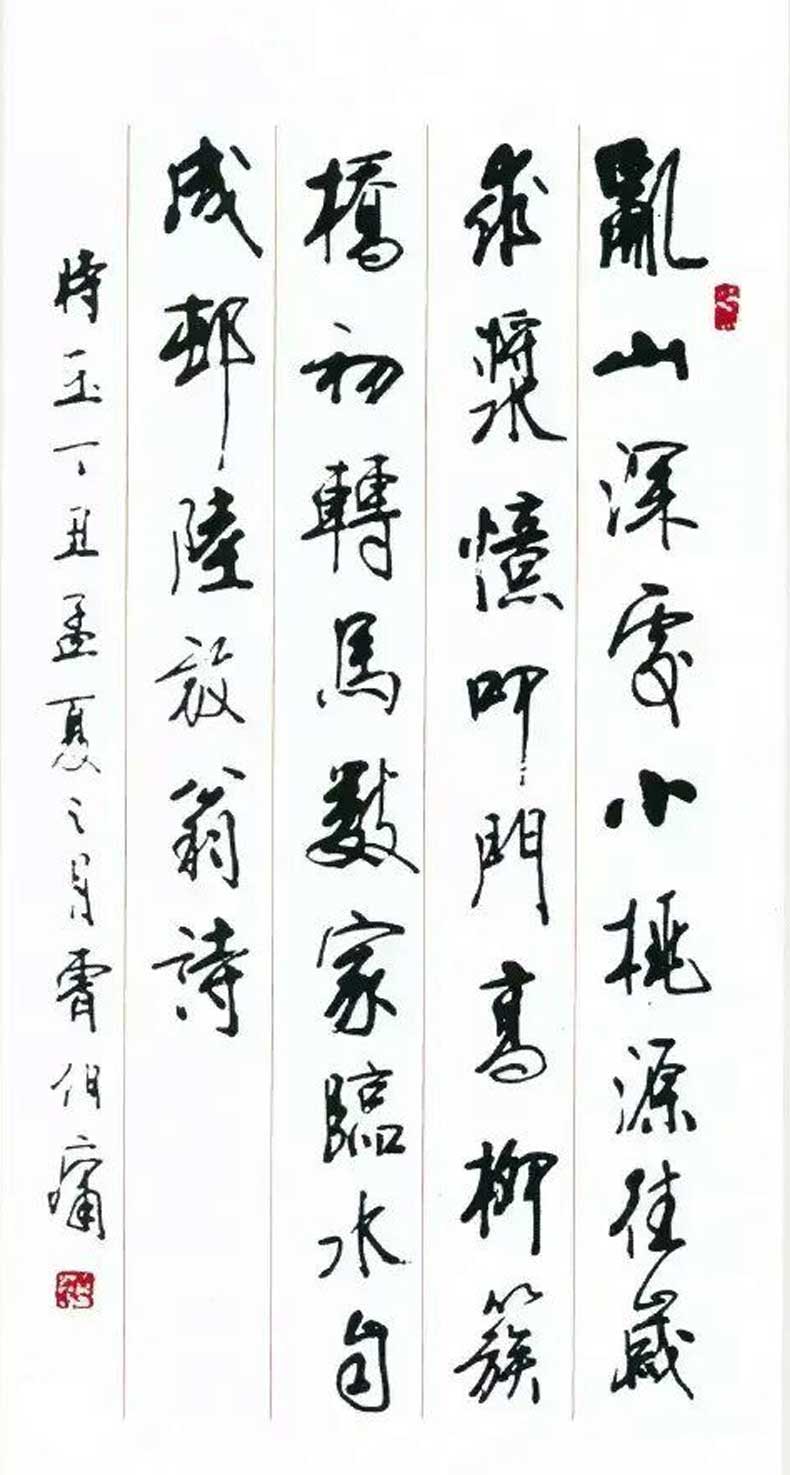 亂山深處小桃源往歲
求漿憶叩門高柳簇
橋初轉馬數家臨水自
成邨陸放翁詩
時在丁丑孟夏之月伯庸